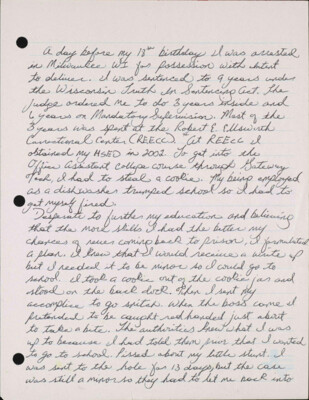 A day before my 13th birthday I was arrested
in Milwaukee WI for possession with intent
to deliver. I was sentenced to 9 years under
the Wisconsin Truth In Sentencing Act, the
judge ordered me to do 3 years inside and
6 years on Mandatory Supervision. Most of the
3 years was spent at the Robert E. Ellsworth
Correctional Center (REECC). At REECC I
obtained my HSED in 2002. To get into the
Office Assistant college course through Gateway
Tech, I had to steal a cookie. My being employed
as a dishwasher trumped school so I had to
get myself fired.
Desperate to further my education and believing
that the more skills I had the better my
chances of never coming back to prison, I formulated
a plan. I knew that I would receive a write up
but I needed it to be minor so I could go to
school. I took a cookie out of the cookie jar and
stood on the back dock. Then I sent my
accomplice to go snitch. When the boss came I
pretended to be caught red handed just about
to take a bite. The authorities knew what I was
up to because I had told them prior that I wanted
to go to school. Pissed about my little stunt. I
was sent to the hole for 13 days, but the case
was still a minor so they had to let me back into